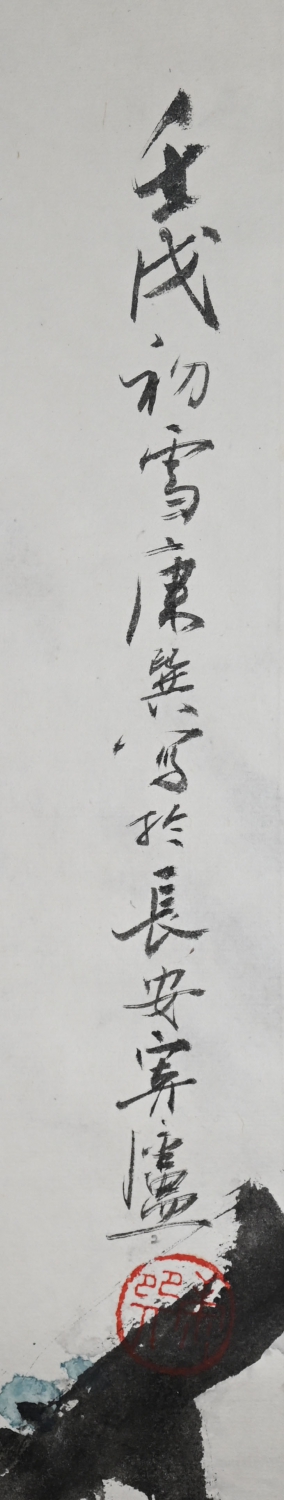 壬戌初雪康巽写於長安寄廬